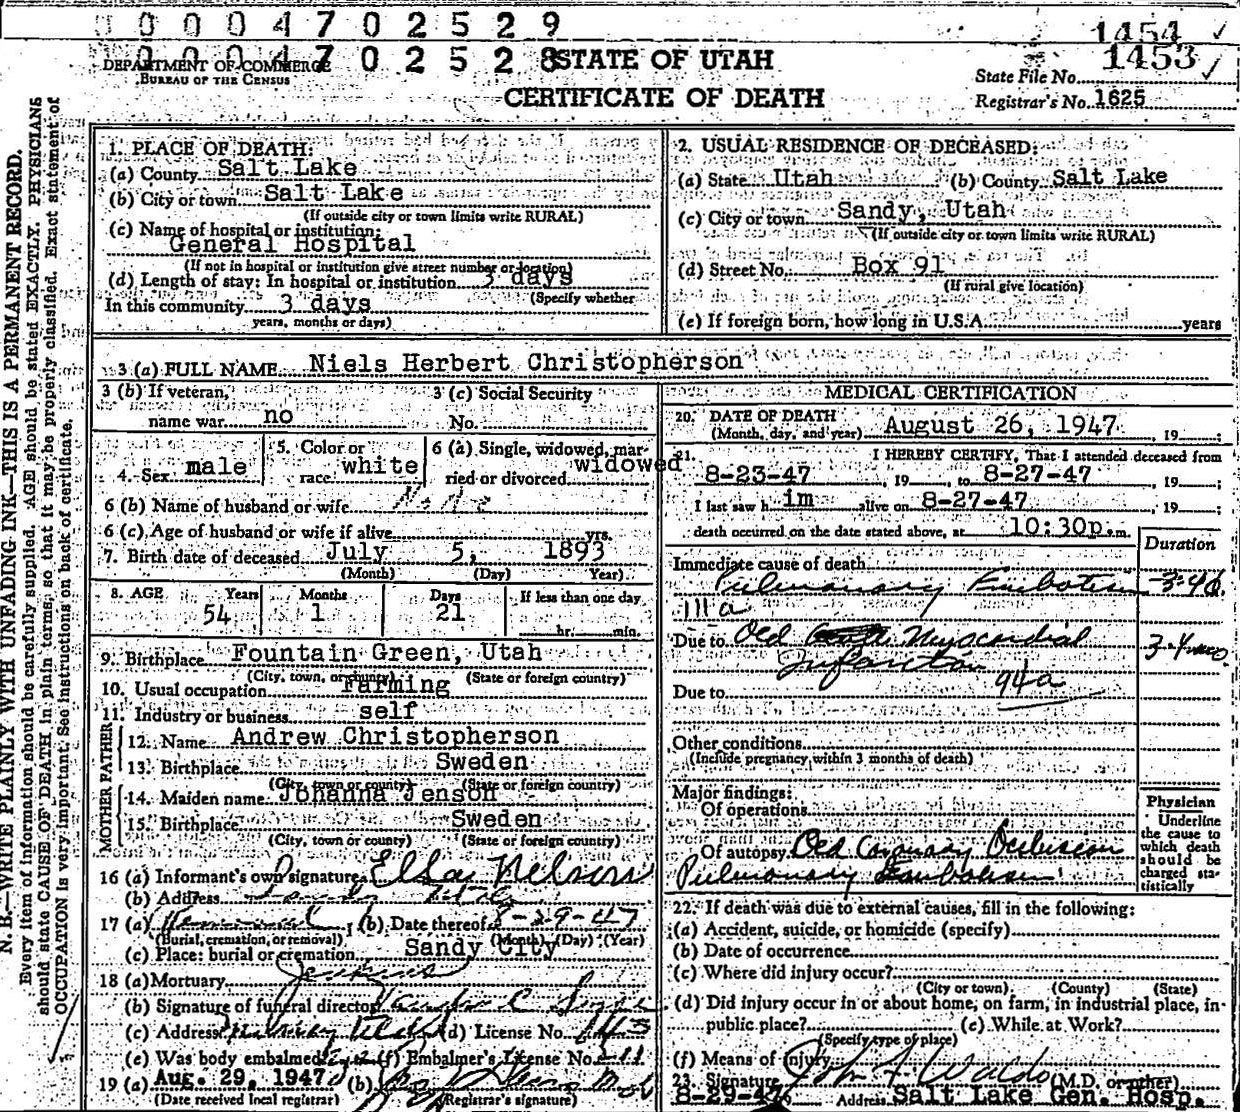 0 0 0 4 7 0 2 5 2 9
0 0 0 4 7 0 2 5 2 8
1454 ✓
1453 ✓
DEPARTMENT OF COMMERCE
BUREAU OF THE CENSUS
STATE OF UTAH
CERTIFICATE OF DEATH
State File No.
Registrar's No. 1625
N. B.—WRITE PLAINLY WITH UNFADING INK—THIS IS A PERMANENT RECORD.
Every item of information should be carefully supplied. AGE should be stated EXACTLY. PHYSICIANS
should state CAUSE OF DEATH in plain terms, so that it may be properly classified. Exact statement of
OCCUPATION is very important. See instructions on back of certificate.
1. PLACE OF DEATH:
(a) County Salt Lake
(b) City or town Salt Lake
(If outside city or town limits write RURAL)
(c) Name of hospital or institution:
General Hospital
(If not in hospital or institution give street number or location)
(d) Length of stay: In hospital or institution 3 days
(Specify whether
In this community 3 days
years, months or days)
2. USUAL RESIDENCE OF DECEASED:
(a) State Utah (b) County Salt Lake
(c) City or town Sandy, Utah
(If outside city or town limits write RURAL)
(d) Street No. Box 91
(If rural give location)
(e) If foreign born, how long in U.S.A. years
3 (a) FULL NAME Niels Herbert Christopherson
3 (b) If veteran,
name war no
3 (c) Social Security
No.
4. Sex male
5. Color or
race white
6 (a) Single, widowed, mar-
ried or divorced widowed
6 (b) Name of husband or wife
6 (c) Age of husband or wife if alive yrs.
7. Birth date of deceased July 5, 1893
(Month) (Day) Year)
8. AGE Years Months Days If less than one day
54 1 21 hr. min.
9. Birthplace Fountain Green, Utah
(City, town, or county) (State or foreign country)
10. Usual occupation Farming
11. Industry or business self
FATHER
12. Name Andrew Christopherson
13. Birthplace Sweden
(City, town or county) (State or foreign country)
MOTHER
14. Maiden name Johanna Jenson
15. Birthplace Sweden
(City, town or county) (State or foreign country)
16 (a) Informant's own signature Ella Nelson
(b) Address Sandy Utah
17 (a) Removal (b) Date thereof 8-29-47
(Burial, cremation, or removal) (Month) (Day) (Year)
(c) Place: burial or cremation Sandy City
18 (a) Mortuary Jenkins
(b) Signature of funeral director
(c) Address Murray Utah (d) License No.
(e) Was body embalmed? (f) Embalmer's License No.
19 (a) Aug. 29, 1947 (b)
(Date received local registrar) (Registrar's signature)
MEDICAL CERTIFICATION
20. DATE OF DEATH
(Month, day, and year) August 26, 1947, 19 ;
21. I HEREBY CERTIFY, That I attended deceased from
8-23-47, 19 , to 8-27-47, 19 ;
I last saw him alive on 8-27-47, 19 ;
death occurred on the date stated above, at 10:30p.m.
Duration
Immediate cause of death
Pulmonary Embolism
111a
Due to Old Myocardial
Infarction
94a
Due to
Other conditions
(Include pregnancy within 3 months of death)
Major findings:
Of operations
Of autopsy Old Coronary Occlusion
Pulmonary Embolism
Physician
Underline
the cause to
which death
should be
charged sta-
tistically
22. If death was due to external causes, fill in the following:
(a) Accident, suicide, or homicide (specify)
(b) Date of occurrence
(c) Where did injury occur?
(City or town) (County) (State)
(d) Did injury occur in or about home, on farm, in industrial place, in
public place? (e) While at Work?
(Specify type of place)
(f) Means of injury
23. Signature John F Waldo (M.D. or other)
8-29-47 Address Salt Lake Gen. Hosp.